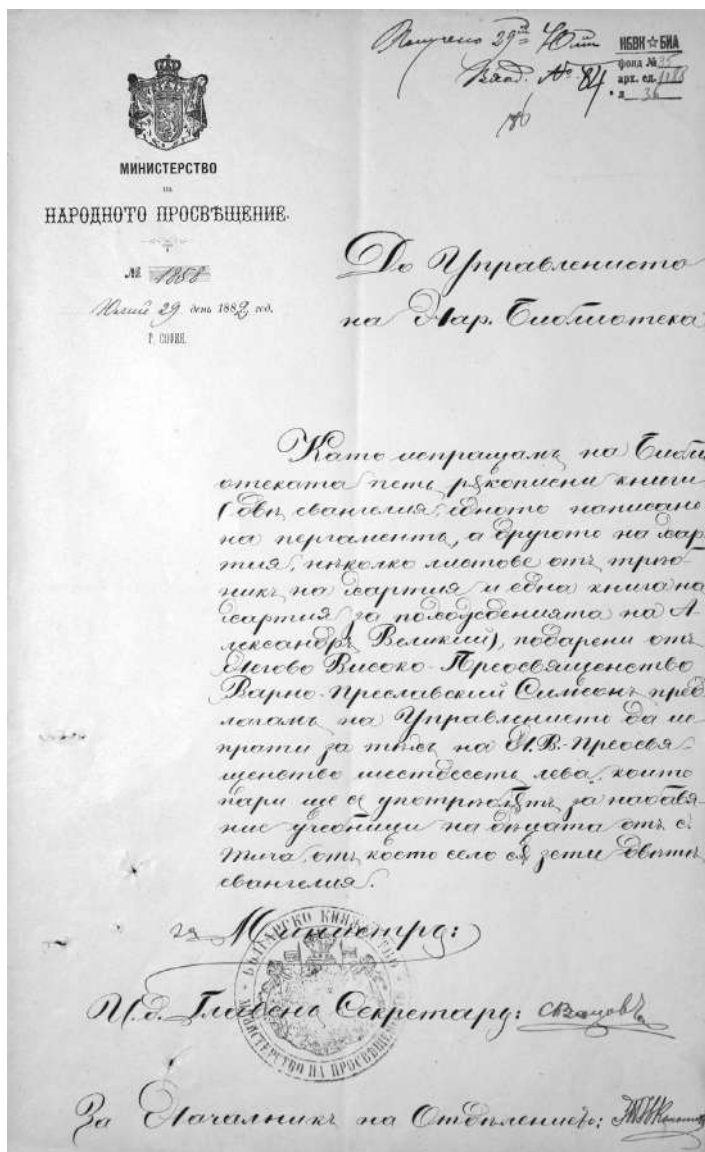 Получено 29й Юлий
Вход. № 84
НБКМ ☆ БИА
фонд № 35
арх. ед. 1188
л 36
МИНИСТЕРСТВО
на
НАРОДНОТО ПРОСВѢЩЕНИЕ.
№ 1858
Юлий 29 день 1882 год.
Г. СОФИЯ.
До Управлението
на Нар. Библиотека
Като испращамъ на Библи
отеката петь рѫкописни книги
(двѣ евангелия, едното написано
на пергаментъ, а другото на хар
тия, нѣколко листове отъ трио-
никъ на хартия и една книга на
хартия за похожденията на А-
лександръ Великий), подарени отъ
Негово Високо-Преосвященство
Варно-Преславский Симеонъ пред
лагамъ на Управлението да ис
прати за тѣхъ на Н.В.-Преосвя-
щенство шестдесеть лева, които
пари ще сѫ употрѣбѭтъ за набавя-
ние учебници на дѣцата отъ с.
Тича, отъ което село сѫ зети двѣтѣ
евангелия.
за Министръ:
БЪЛГАРСКО КНЯЖЕСТВО
МИНИСТЕРСТВО НА ПРОСВѢЩЕНИЕТО
И.д. Главенъ Секретаръ: СВацовъ
За Началникъ на Отдѣлението: